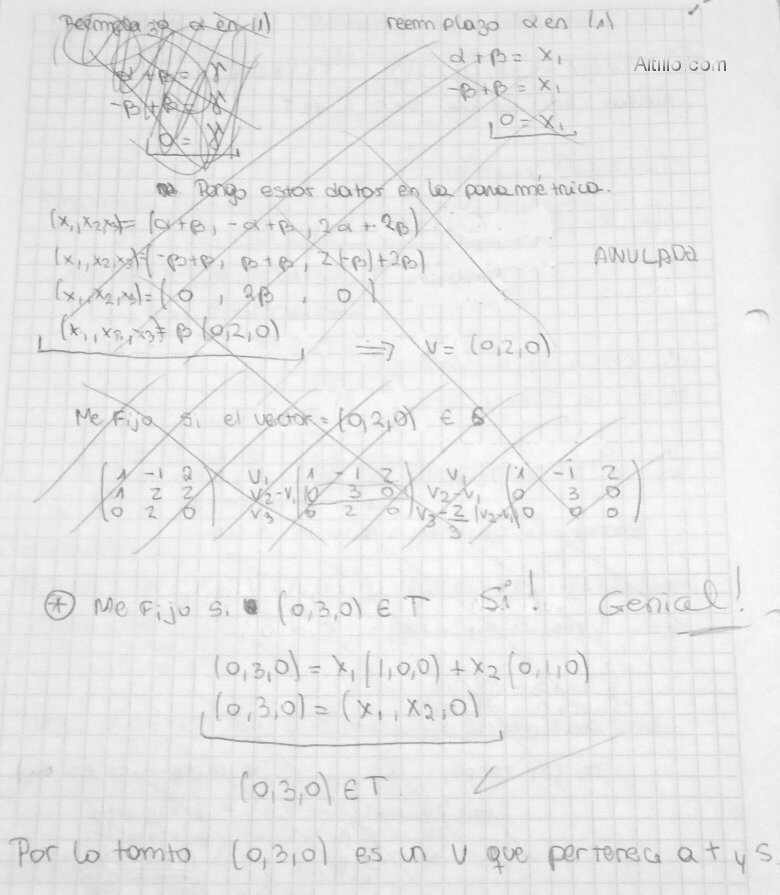 Reemplazo α en (1)
α+β = γ
-β+β = γ
0 = γ
reemplazo α en (1)
α+β = x₁
-β+β = x₁
0 = x₁
Altillo.com
Pongo estos datos en la paramétrica.
(x₁,x₂,x₃)=(α+β, -α+β, 2α+2β)
(x₁,x₂,x₃)=(-β+β, β+β, 2(-β)+2β)
ANULADA
(x₁,x₂,x₃)=(0, 2β, 0)
(x₁,x₂,x₃)=β(0,2,0) ⟹ v=(0,2,0)
Me fijo si el vector=(0,2,0) ∈ S
1 -1 2 v₁ 1 -1 2 v₁ 1 -1 2
1 2 2 v₂-v₁ 0 3 0 v₂-v₁ 0 3 0
0 2 0 v₃ 0 2 0 v₃-2/3(v₂-v₁) 0 0 0
* Me fijo si (0,3,0) ∈ T Sí! Genial!
(0,3,0) = x₁(1,0,0)+x₂(0,1,0)
(0,3,0) = (x₁, x₂, 0)
(0,3,0) ∈ T
Por lo tamto (0,3,0) es un v que pertenece a T y S